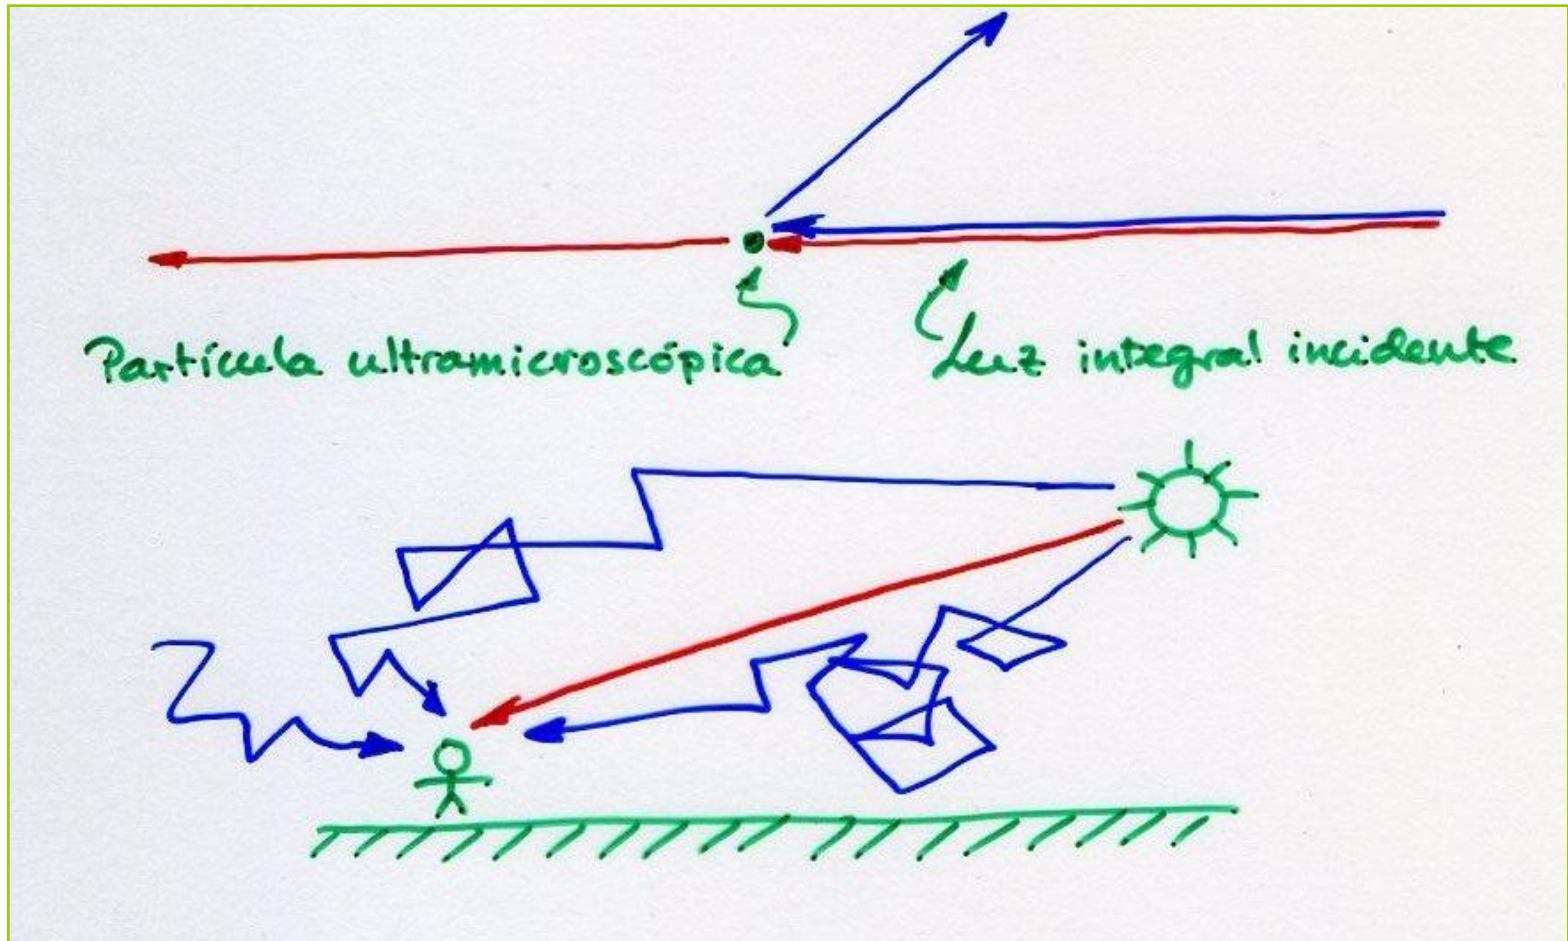 Partícula ultramicroscópica
Luz integral incidente